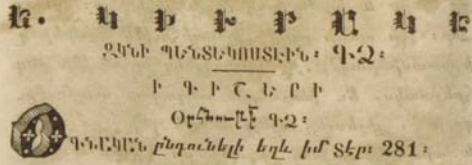 Ե. ԿԻՒՐԱԿԷ
ԶԿՆԻ ՊԵՆՏԵԿՈՍՏԷԻՆ։ ԳՁ։
Ի ԳԻՇԵՐԻ
Օրհնութի ԳՁ։
ՕԳՆԱԿԱՆ ընդունելի եղև ինձ Տէր։ 281։